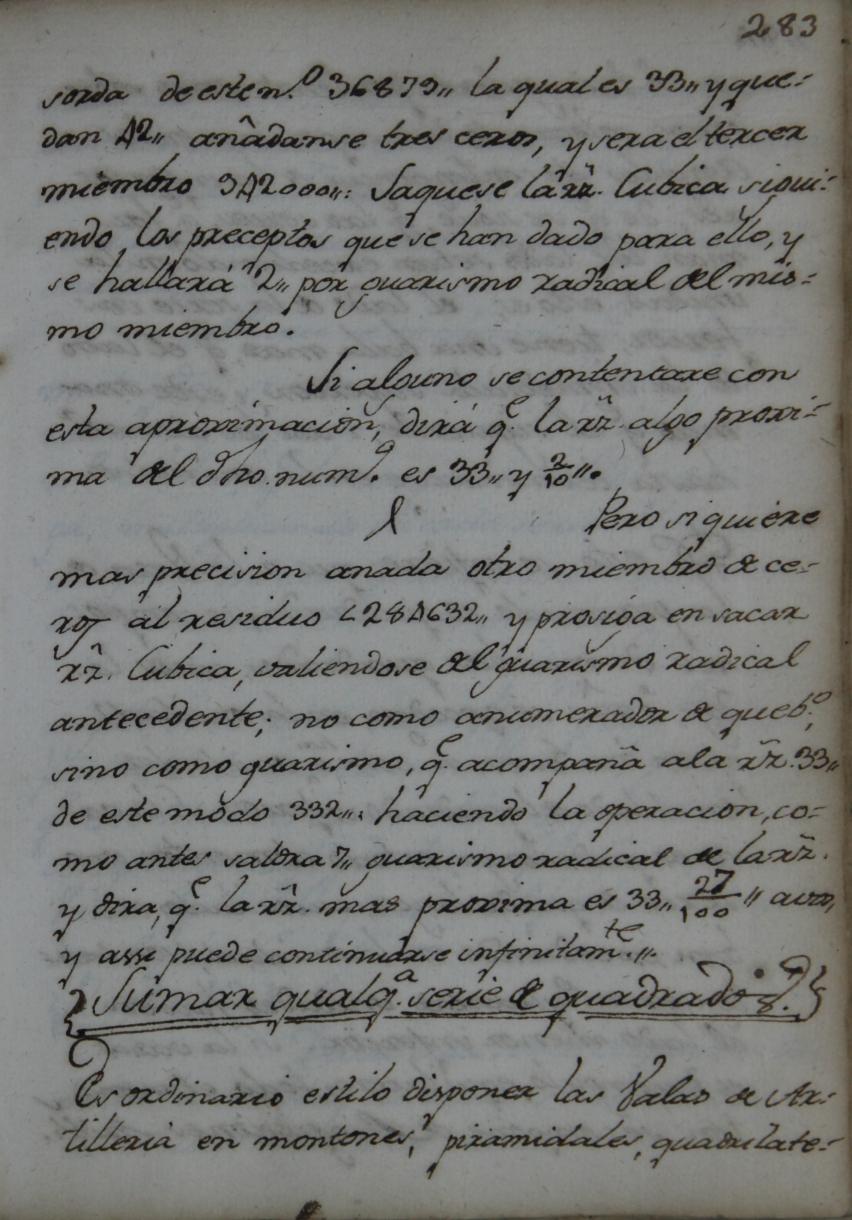 283
sorda de este n.º 36879,, la qual es 33,, y que-
dan 42,, añadanse tres ceros, y sera el tercer
miembro 942000,,: Saquese la rz̃. Cubica sigui-
endo los preceptos que se han dado para ello, y
se hallará 2,, por guarismo radical del mis-
mo miembro.
Si alguno se contentare con
esta aproximacion, dirá q.e la rz̃. algo proxi-
ma del dho. num.º es 33,, y 2/10,,.
Pero si quiere
mas precision anada otro miembro de ce-
ros al residuo 284632,, y prosiga en sacar
rz̃. Cubica, valiendose del guarismo radical
antecedente; no como a numerador de queb.º,
sino como guarismo, q.e acompaña a la rz̃. 33,,
de este modo 332,,: haciendo la operacion, co-
mo antes saldra 7,, guarismo radical de la rz̃.
y dira, q.e la rz̃. mas proxima es 33,, 27/100,, avos,
y assi puede continuarse infinitam.te,,.
Sumar qualq.a serie de quadrados.
Es ordinario estilo disponer las Valas de Ar-
tilleria en montones, piramidales, quadrilate-